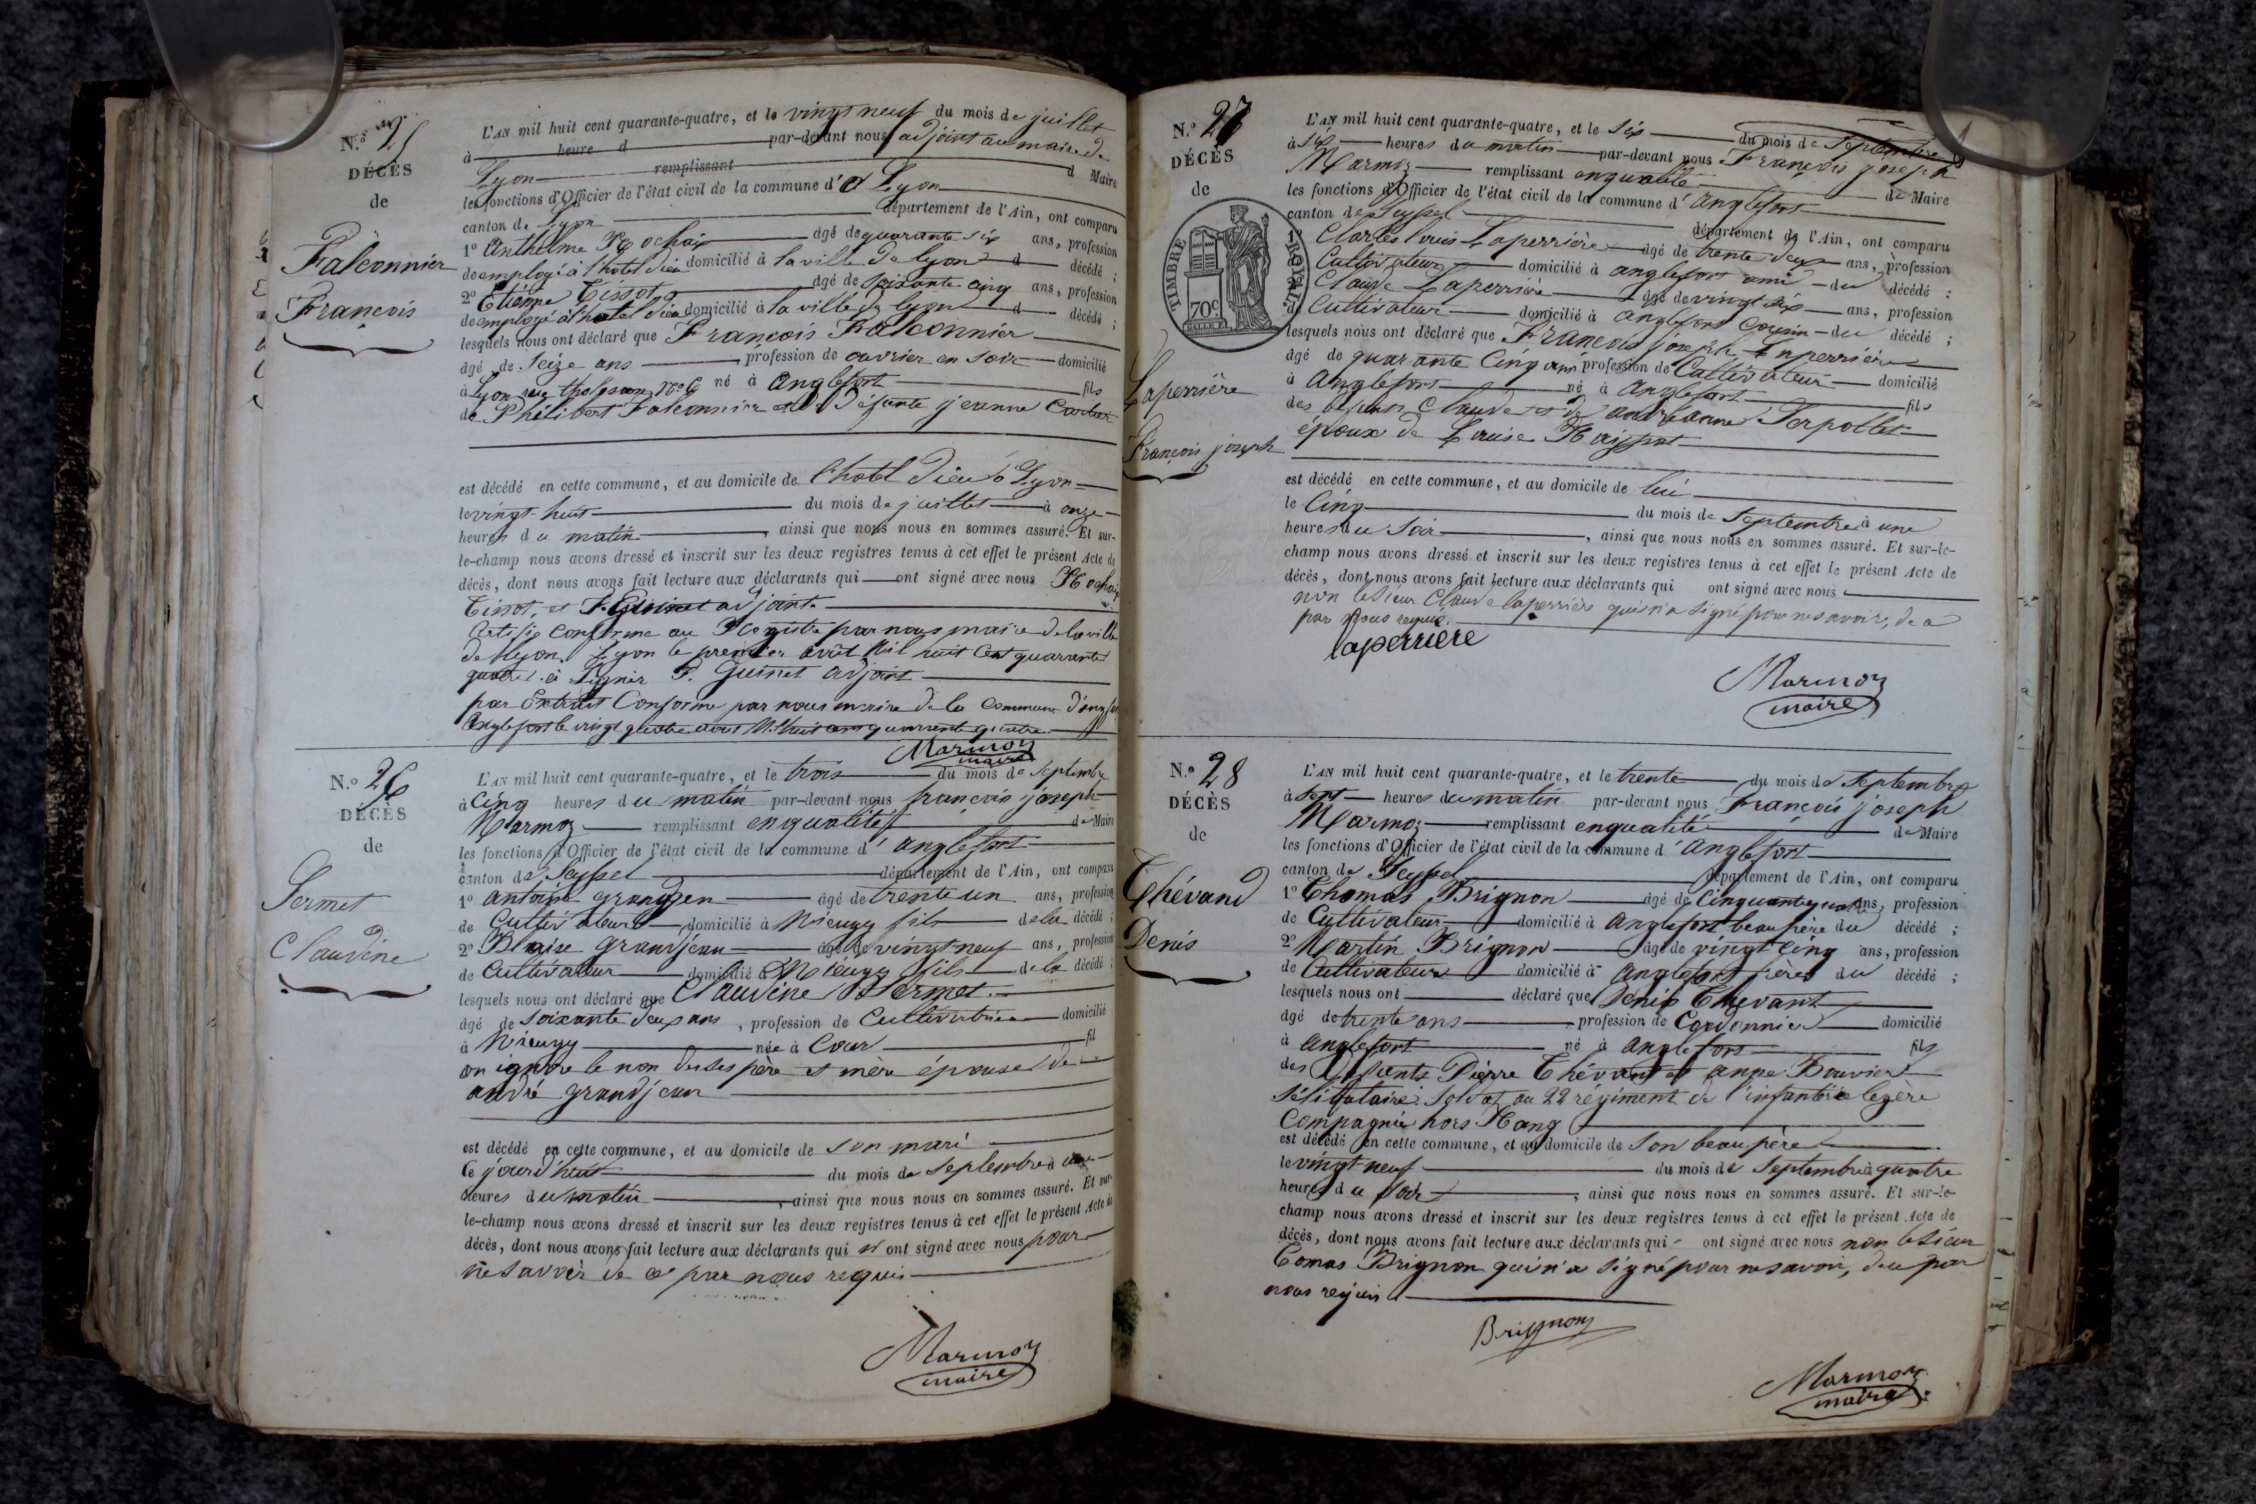 N.º 25
DÉCÈS
de
Falconnier
François
L'AN mil huit cent quarante-quatre, et le vingt neuf du mois de juillet
à heure d par-devant nous adjoint au maire de
Lyon remplissant d Maire
les fonctions d'Officier de l'état civil de la commune d' Lyon
canton de Lyon département de l'Ain, ont comparu
1º Anthelme Rochaix âgé de quarante six ans, profession
de employé à l'hotel dieu domicilié à la ville de lyon d décédé ;
2º Etienne Tissot âgé de soixante cinq ans, profession
de employé à l'hotel dieu domicilié à la ville de lyon d décédé ;
lesquels nous ont déclaré que François Falconnier
âgé de Seize ans profession de ouvrier en soie domicilié
à Lyon rue né à Anglefort fils
de Philibert Falconnier et de défunte jeanne
est décédé en cette commune, et au domicile de l'hotel dieu à Lyon
le vingt huit du mois de juillet à onze
heures du matin, ainsi que nous nous en sommes assuré. Et sur-
le-champ nous avons dressé et inscrit sur les deux registres tenus à cet effet le présent Acte de
décès, dont nous avons fait lecture aux déclarants qui ont signé avec nous Rochaix
Tissot, et F. Guinet adjoint.
Conforme au Registre par nous maire de la ville
de Lyon. Lyon le premier août Mil huit Cent quarante
quatre. à Signer F. Guinet adjoint
par Extrait Conforme par nous maire de la Commune d'
Anglefort le vingt quatre aout M. huit cent quarante quatre
Marmoz
maire
N.º 26
DÉCÈS
de
Sermet
Claudine
L'AN mil huit cent quarante-quatre, et le trois du mois de Septembre
à Cinq heures du matin par-devant nous françois joseph
Marmoz remplissant en qualité de Maire
les fonctions d'Officier de l'état civil de la commune d' anglefort
canton de Seyssel département de l'Ain, ont comparu
1º antoine grandjean âgé de trente un ans, profession
de Cultivateur domicilié à Mieugy fils de la décédé ;
2º Blaise grandjean âgé de vingt neuf ans, profession
de Cultivateur domicilié à Mieugy fils de la décédé ;
lesquels nous ont déclaré que Claudine Sermet
âgé de Soixante deux ans, profession de Cultivatrice domicilié
à Mieugy née à Cour fil
on ignore le nom de ses père et mère épouse de
andré grandjean
est décédé en cette commune, et au domicile de son mari
le jourd'huit du mois de Septembre à une
heures du matin, ainsi que nous nous en sommes assuré. Et sur-
le-champ nous avons dressé et inscrit sur les deux registres tenus à cet effet le présent Acte de
décès, dont nous avons fait lecture aux déclarants qui n' ont signé avec nous pour
ne savoir de ce par nous requis
Marmoz
maire
N.º 27
DÉCÈS
de
TIMBRE ROYAL
70c
Laperrière
François joseph
L'AN mil huit cent quarante-quatre, et le Six du mois de Septembre
à Six heures du matin par-devant nous François joseph
Marmoz remplissant en qualité de Maire
les fonctions d'Officier de l'état civil de la commune d' Anglefort
canton de Seyssel département de l'Ain, ont comparu
1º Charles louis Laperrière âgé de trente deux ans, profession
de Cultivateur domicilié à anglefort ami du décédé ;
2º Claude Laperrière âgé de vingt six ans, profession
de Cultivateur domicilié à anglefort Cousin du décédé ;
lesquels nous ont déclaré que François joseph Laperrière
âgé de quarante Cinq ans profession de Cultivateur domicilié
à Anglefort né à Anglefort fils
des défunts Claude et de andréanne Serpollet
époux de Louise
est décédé en cette commune, et au domicile de lui
le Cinq du mois de Septembre à une
heures du Soir, ainsi que nous nous en sommes assuré. Et sur-le-
champ nous avons dressé et inscrit sur les deux registres tenus à cet effet le présent Acte de
décès, dont nous avons fait lecture aux déclarants qui ont signé avec nous
non le Sieur Claude laperrière qui n'a signé pour ne savoir, de a
par Nous requis.
laperriere
Marmoz
maire
N.º 28
DÉCÈS
de
Thévand
Denis
L'AN mil huit cent quarante-quatre, et le trente du mois de Septembre
à sept heures du matin par-devant nous François joseph
Marmoz remplissant en qualité de Maire
les fonctions d'Officier de l'état civil de la commune d' Anglefort
canton de Seyssel département de l'Ain, ont comparu
1º Thomas Brignon âgé de Cinquante quatre ans, profession
de Cultivateur domicilié à Anglefort beau père du décédé ;
2º Martin Brignon âgé de vingt Cinq ans, profession
de Cultivateur domicilié à anglefort frère du décédé ;
lesquels nous ont déclaré que Denis Thevant
âgé de trente ans profession de Cordonnier domicilié
à anglefort né à anglefort fils
des défunts Pierre Thévant et anne Bouvier
Soldat au 22 régiment de l'infanterie legère
Compagnie hors Rang
est décédé en cette commune, et au domicile de Son beau père
le vingt neuf du mois de Septembre à quatre
heures du Soir, ainsi que nous nous en sommes assuré. Et sur-le-
champ nous avons dressé et inscrit sur les deux registres tenus à cet effet le présent Acte de
décès, dont nous avons fait lecture aux déclarants qui ont signé avec nous non le Sieur
Tomas Brignon qui n'a Signé pour ne savoir, de a par
nous requis
Brignon
Marmoz
maire